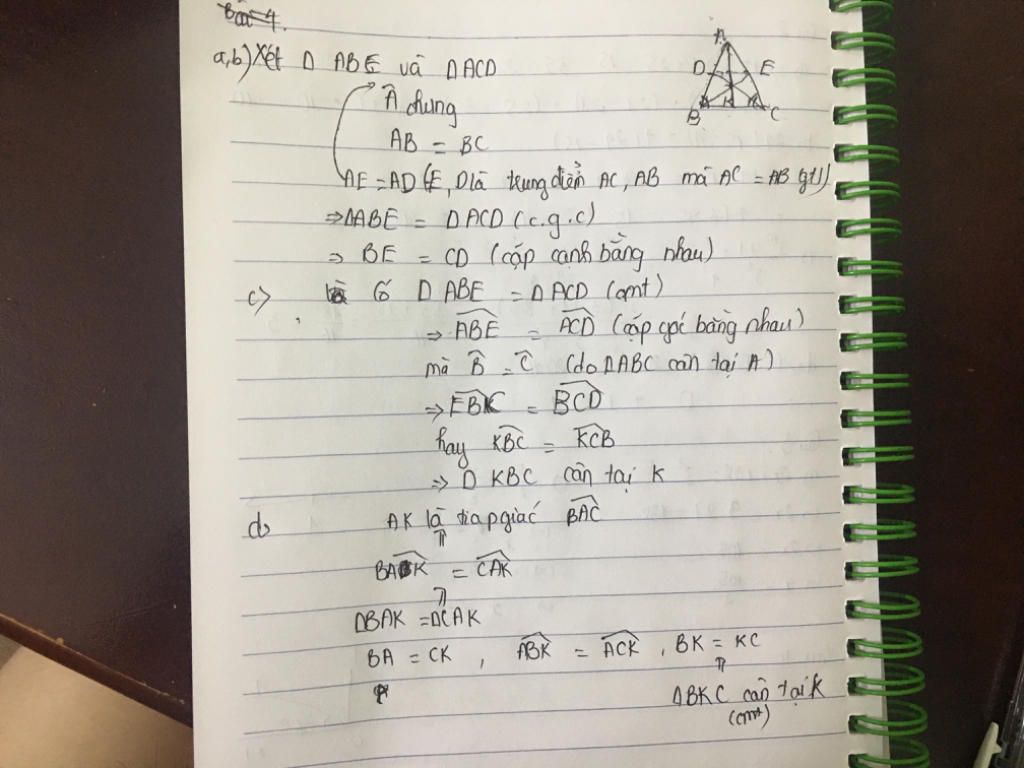 Bài 4.
a,b) Xét Δ ABE và Δ ACD
Â chung
AB = BC
AE = AD (E, D là trung điểm AC, AB mà AC = AB gt)
⇒ ΔABE = ΔACD (c.g.c)
⇒ BE = CD (cặp cạnh bằng nhau)
c) Có Δ ABE = Δ ACD (cmt)
⇒ \widehat{ABE} = \widehat{ACD} (cặp góc bằng nhau)
mà \widehat{B} = \widehat{C} (do ΔABC cân tại A)
⇒ \widehat{EBC} = \widehat{BCD}
hay \widehat{KBC} = \widehat{KCB}
⇒ Δ KBC cân tại K
d) AK là tia p giác \widehat{BAC}
⇑
\widehat{BAK} = \widehat{CAK}
⇑
ΔBAK = ΔCAK
BA = CK , \widehat{ABK} = \widehat{ACK} , BK = KC
⇑
ΔBKC cân tại K
(cmt)
A
D E
K
B C